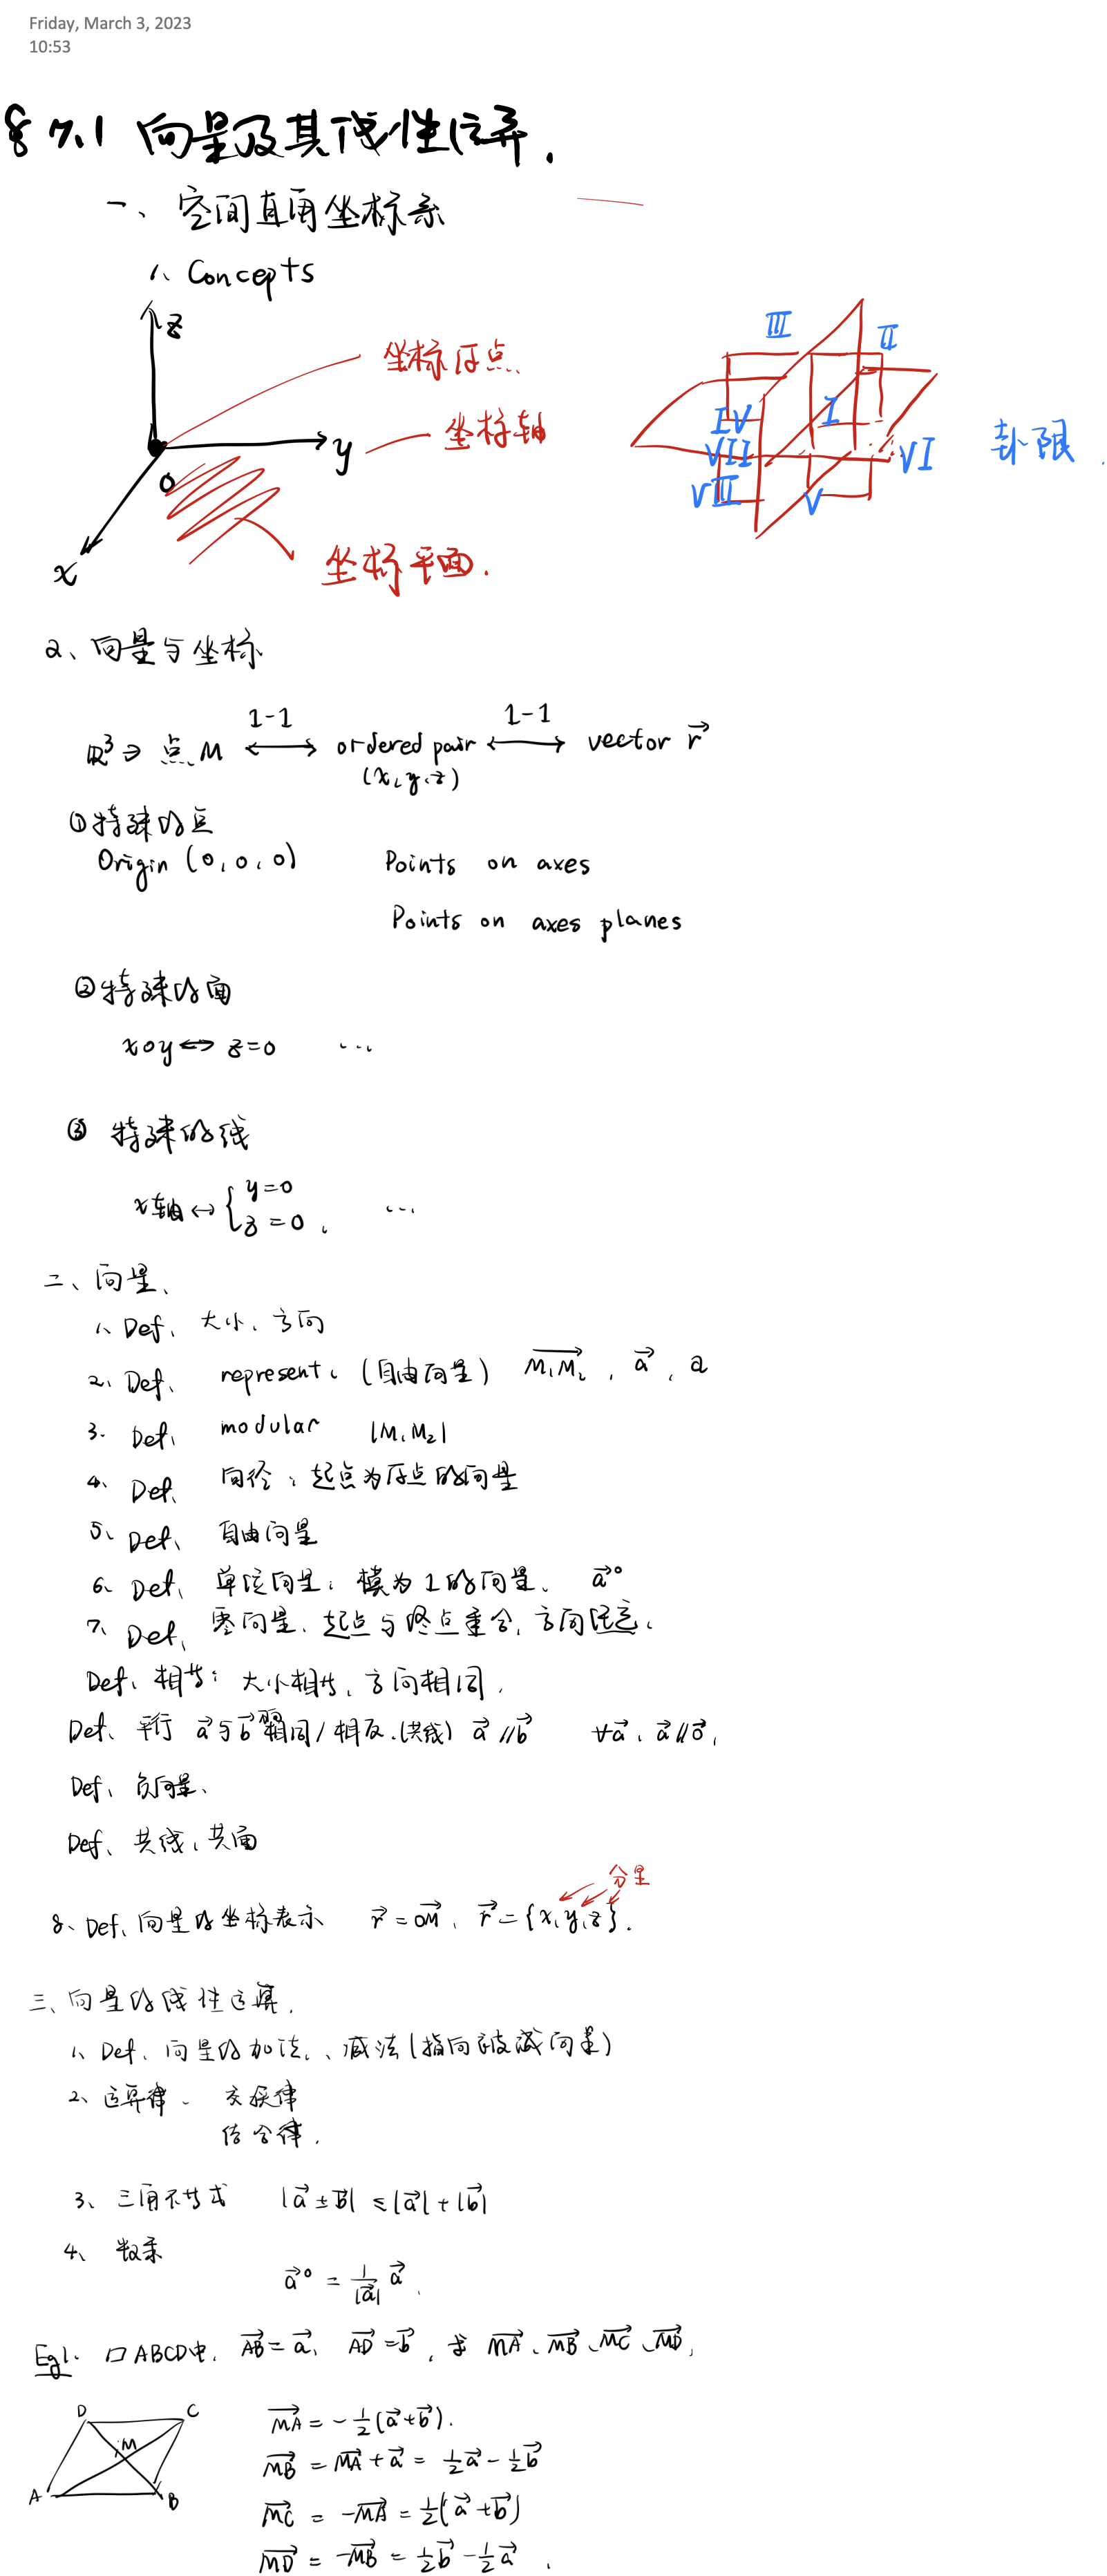 Friday, March 3, 2023
10:53
§7.1 向量及其线性运算.
一、空间直角坐标系
1、Concepts
z
坐标原点
坐标轴
y
O
x
坐标平面.
III
II
IV
I
VII
VI
VIII
V
卦限
2、向量与坐标
1-1 1-1
ℝ³∋ 点M ⟷ ordered pair ⟷ vector r⃗
(x,y,z)
①特殊的点
Origin (0,0,0) Points on axes
Points on axes planes
②特殊的面
xoy ↔ z=0 ...
③ 特殊的线
x轴 ↔ { y=0
z=0 , ...
二、向量、
1、Def、大小、方向
2、Def、represent、(自由向量) M₁M₂⃗ , a⃗ , a
3、Def、modular |M₁M₂|
4、Def、向径:起点为原点的向量
5、Def、自由向量
6、Def、单位向量:模为1的向量、 a⃗°
7、Def、零向量、起点与终点重合,方向任意、
Def、相等:大小相等、方向相同.
Def、平行 a⃗与b⃗ 相同/相反.(共线) a⃗∥b⃗ ∀a⃗、a⃗∥0⃗,
Def、负向量、
Def、共线、共面
分量
8、Def、向量的坐标表示 r⃗=OM⃗, r⃗={x,y,z}.
三、向量的线性运算.
1、Def、向量的加法、、减法(指向被减向量)
2、运算律、交换律
结合律.
3、三角不等式 |a⃗±b⃗|≤|a⃗|+|b⃗|
4、数乘
a⃗°=1/|a⃗| a⃗.
Eg1. □ABCD中, AB⃗=a⃗, AD⃗=b⃗, 求 MA⃗、MB⃗、MC⃗、MD⃗,
D C
M
A B
MA⃗=-½(a⃗+b⃗).
MB⃗=MA⃗+a⃗=½a⃗-½b⃗
MC⃗=-MA⃗=½(a⃗+b⃗)
MD⃗=-MB⃗=½b⃗-½a⃗.